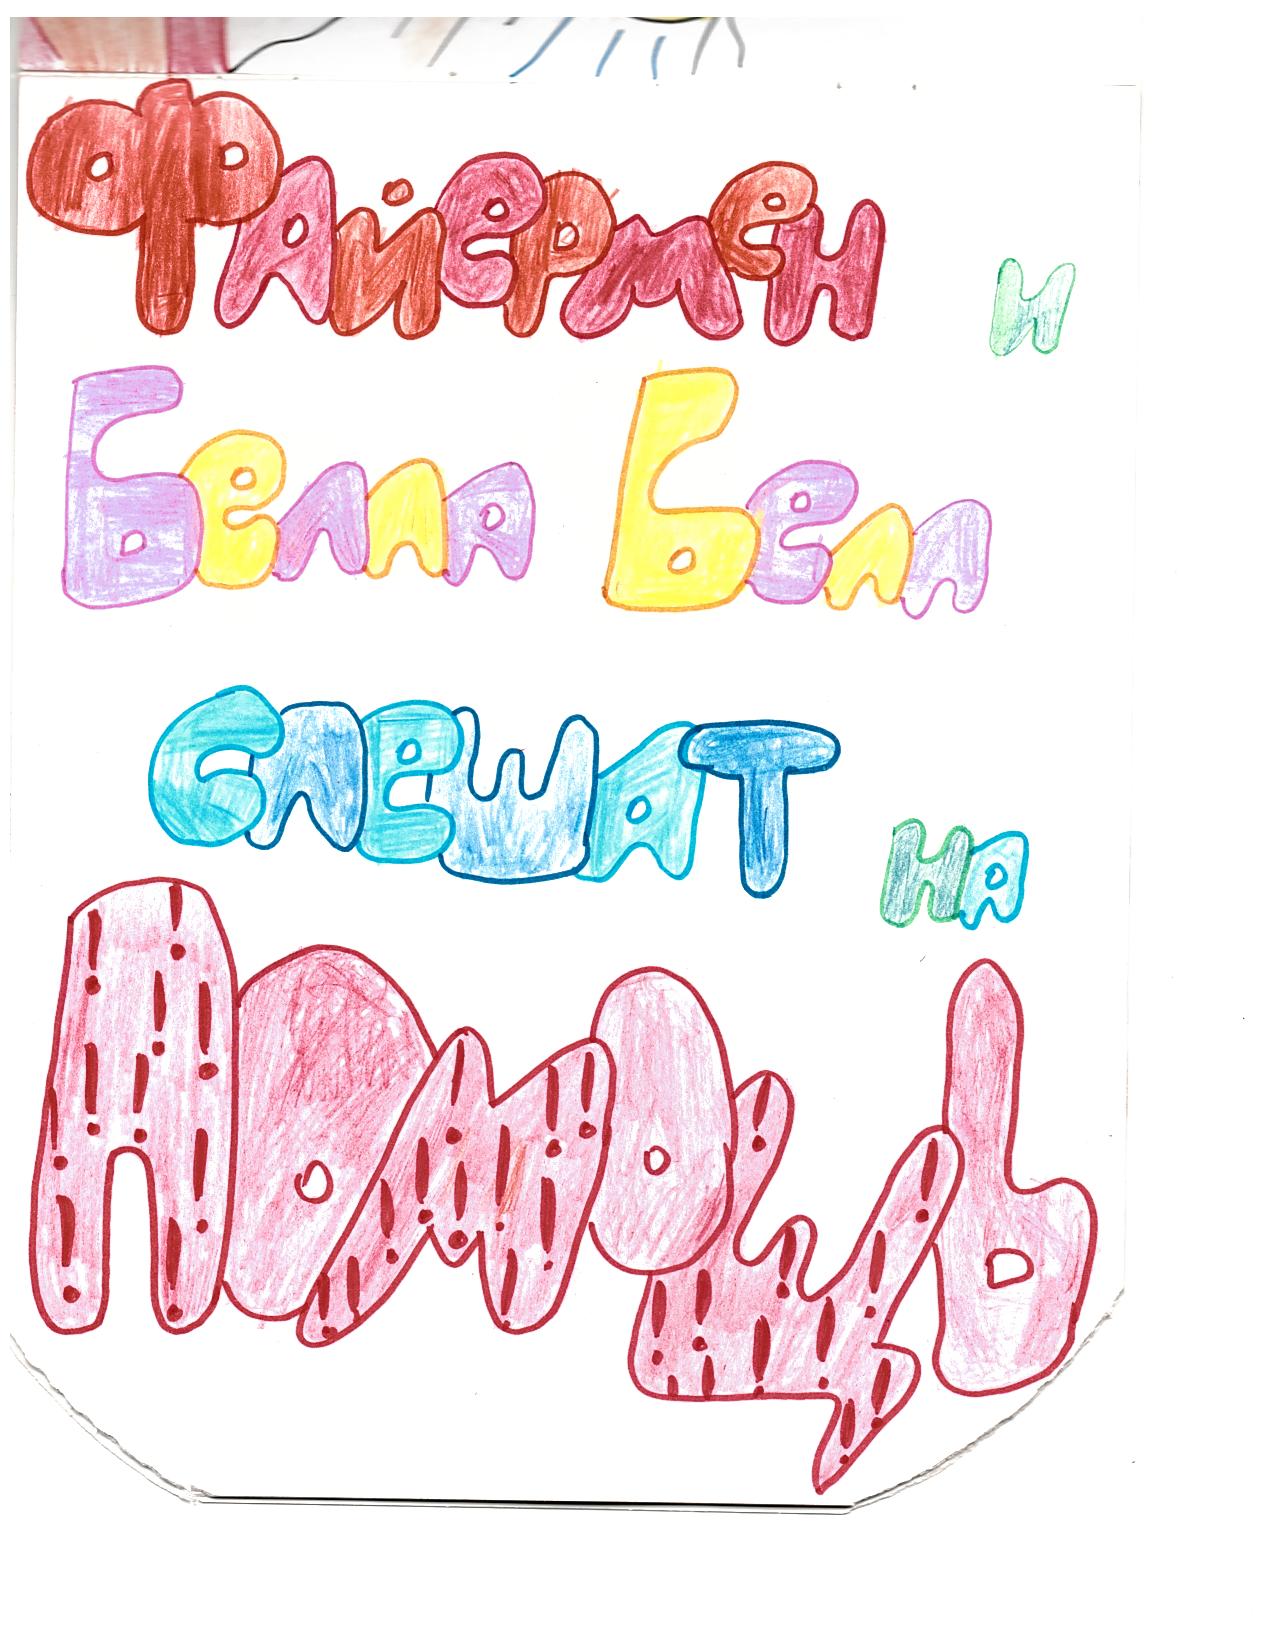 Файермен и
Белла Белл
слешат на
Помощь